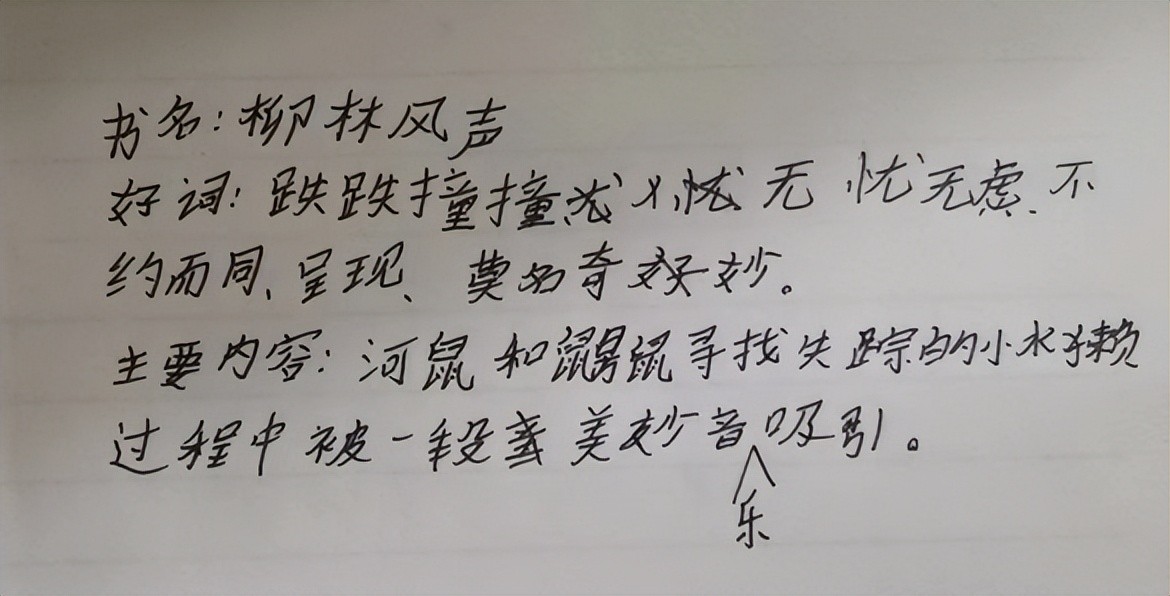 书名:柳林风声
好词:跌跌撞撞 无忧无虑、不
约而同、呈现、莫名奇妙。
主要内容:河鼠和鼹鼠寻找失踪的小水獭
过程中被一段美妙音乐吸引。